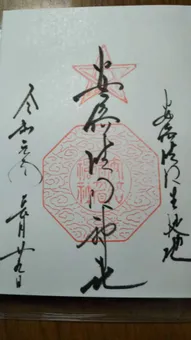 安倍晴明生誕地
安倍晴明神社
令和元年 長月 廿九日